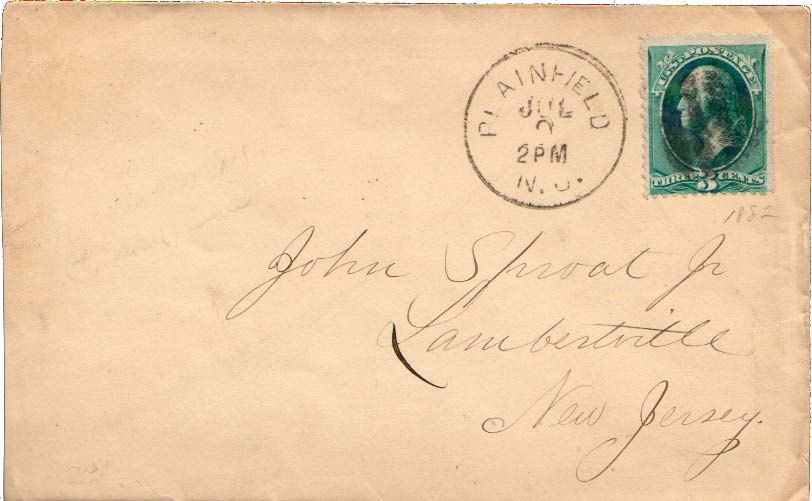 PLAINFIELD
JUL
2PM
N.J.
U.S. POSTAGE
THREE 3 CENTS
1882
John Sproat Jr
Lambertville
New Jersey.